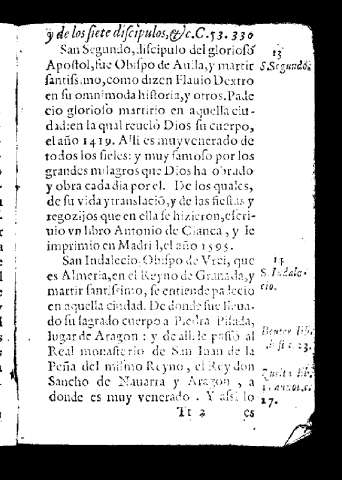 y de los siete discipulos, &c. C. 53. 330
San Segundo, discipulo del glorioso
Apostol, fue Obispo de Auila, y martir
santiss mo, como dizen Flauio Dextro
en su omnimoda historia, y otros. Pade
cio glorioso martirio en aquella ciu-
dad: en la qual reuelò Dios su cuerpo,
el año 1419. Alli es muy venerado de
todos los fieles: y muy famoso por los
grandes milagros que Dios ha obrado
y obra cada dia por el. De los quales,
de su vida y translaciõ, y de las fiestas y
regozijos que en ella se hizieron, escri-
uio vn libro Antonio de Cianca, y le
imprimio en Madril, el año 1595.
San Indalecio Obispo de Vrci, que
es Almeria, en el Reyno de Granada, y
martir santissimo, se entiende padecio
en aquella ciudad. De donde fue lleua-
do su sagrado cuerpo a Piedra Pisada,
lugar de Aragon: y de alli le passò al
Real monasterio de San Iuan de la
Peña del mismo Reyno, el Rey don
Sancho de Nauarra y Aragon, a
donde es muy venerado. Y assi lo
Tt 2 es
13
S. Segundo.
S. Indale-
cio.
17.